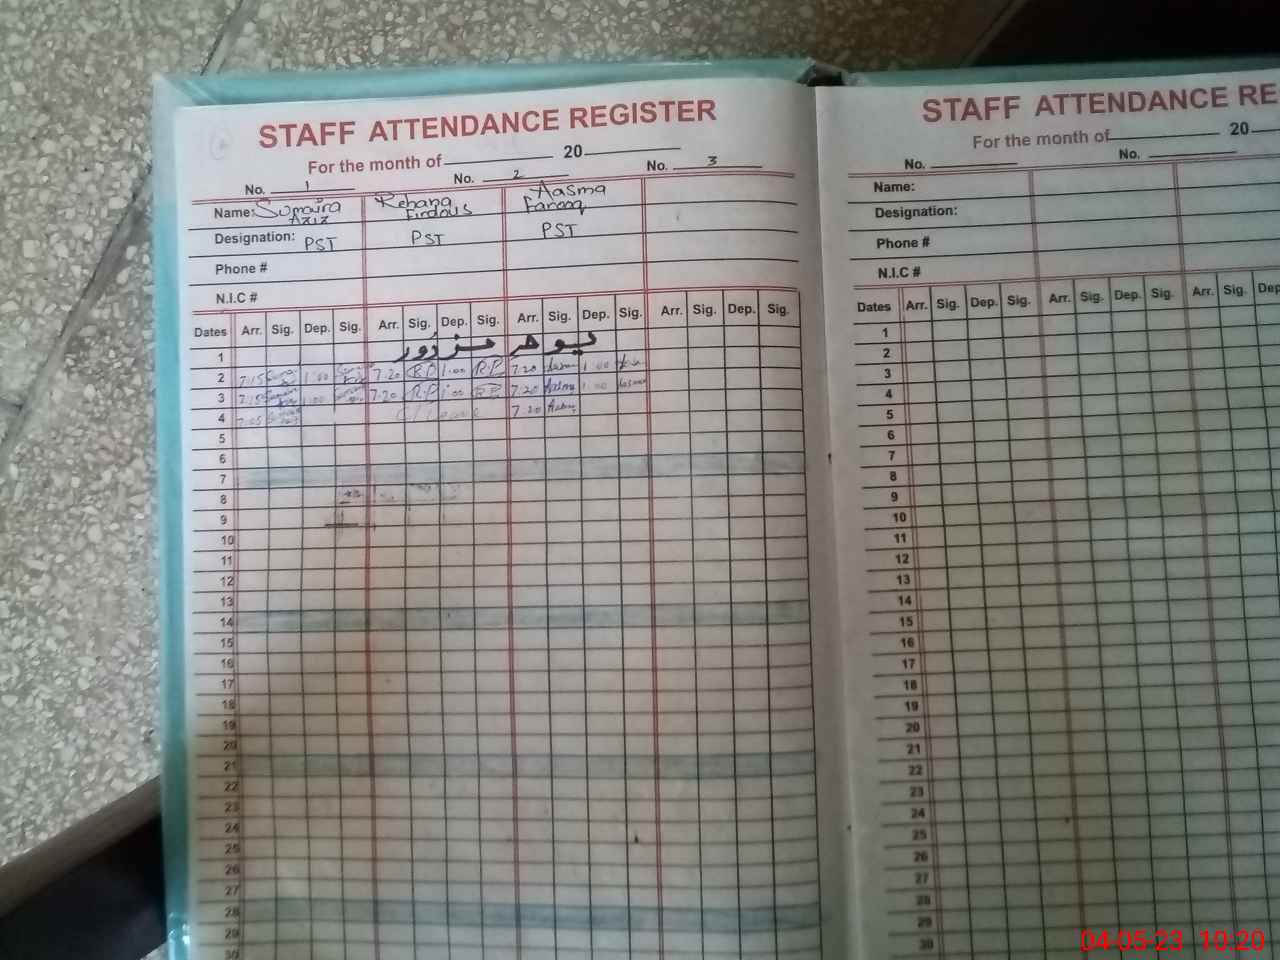 STAFF ATTENDANCE REGISTER
For the month of 20
No. 1 No. 2 No. 3
Name: Sumaira Aziz Rehana Firdous Aasma Farooq
Designation: PST PST PST
Phone #
N.I.C #
Dates Arr. Sig. Dep. Sig. Arr. Sig. Dep. Sig. Arr. Sig. Dep. Sig. Arr. Sig. Dep. Sig.
1 یوم مزدور
2 7:15 1:00 7.20 R.F 1.00 R.F 7.20 1:00
3 7:15 1:00 7.20 R.F 1:00 R.F 7.20 Aasma 1:00 Aasma
4 7:05 C/Leave 7.20
5
6
7
8
9
10
11
12
13
14
15
16
17
18
19
20
21
22
23
24
25
26
27
28
29
30
STAFF ATTENDANCE RE
For the month of 20
No. No.
Name:
Designation:
Phone #
N.I.C #
Dates Arr. Sig. Dep. Sig. Arr. Sig. Dep. Sig. Arr. Sig. Dep
1
2
3
4
5
6
7
8
9
10
11
12
13
14
15
16
17
18
19
20
21
22
23
24
25
26
27
28
29
30
04-05-23 10:20